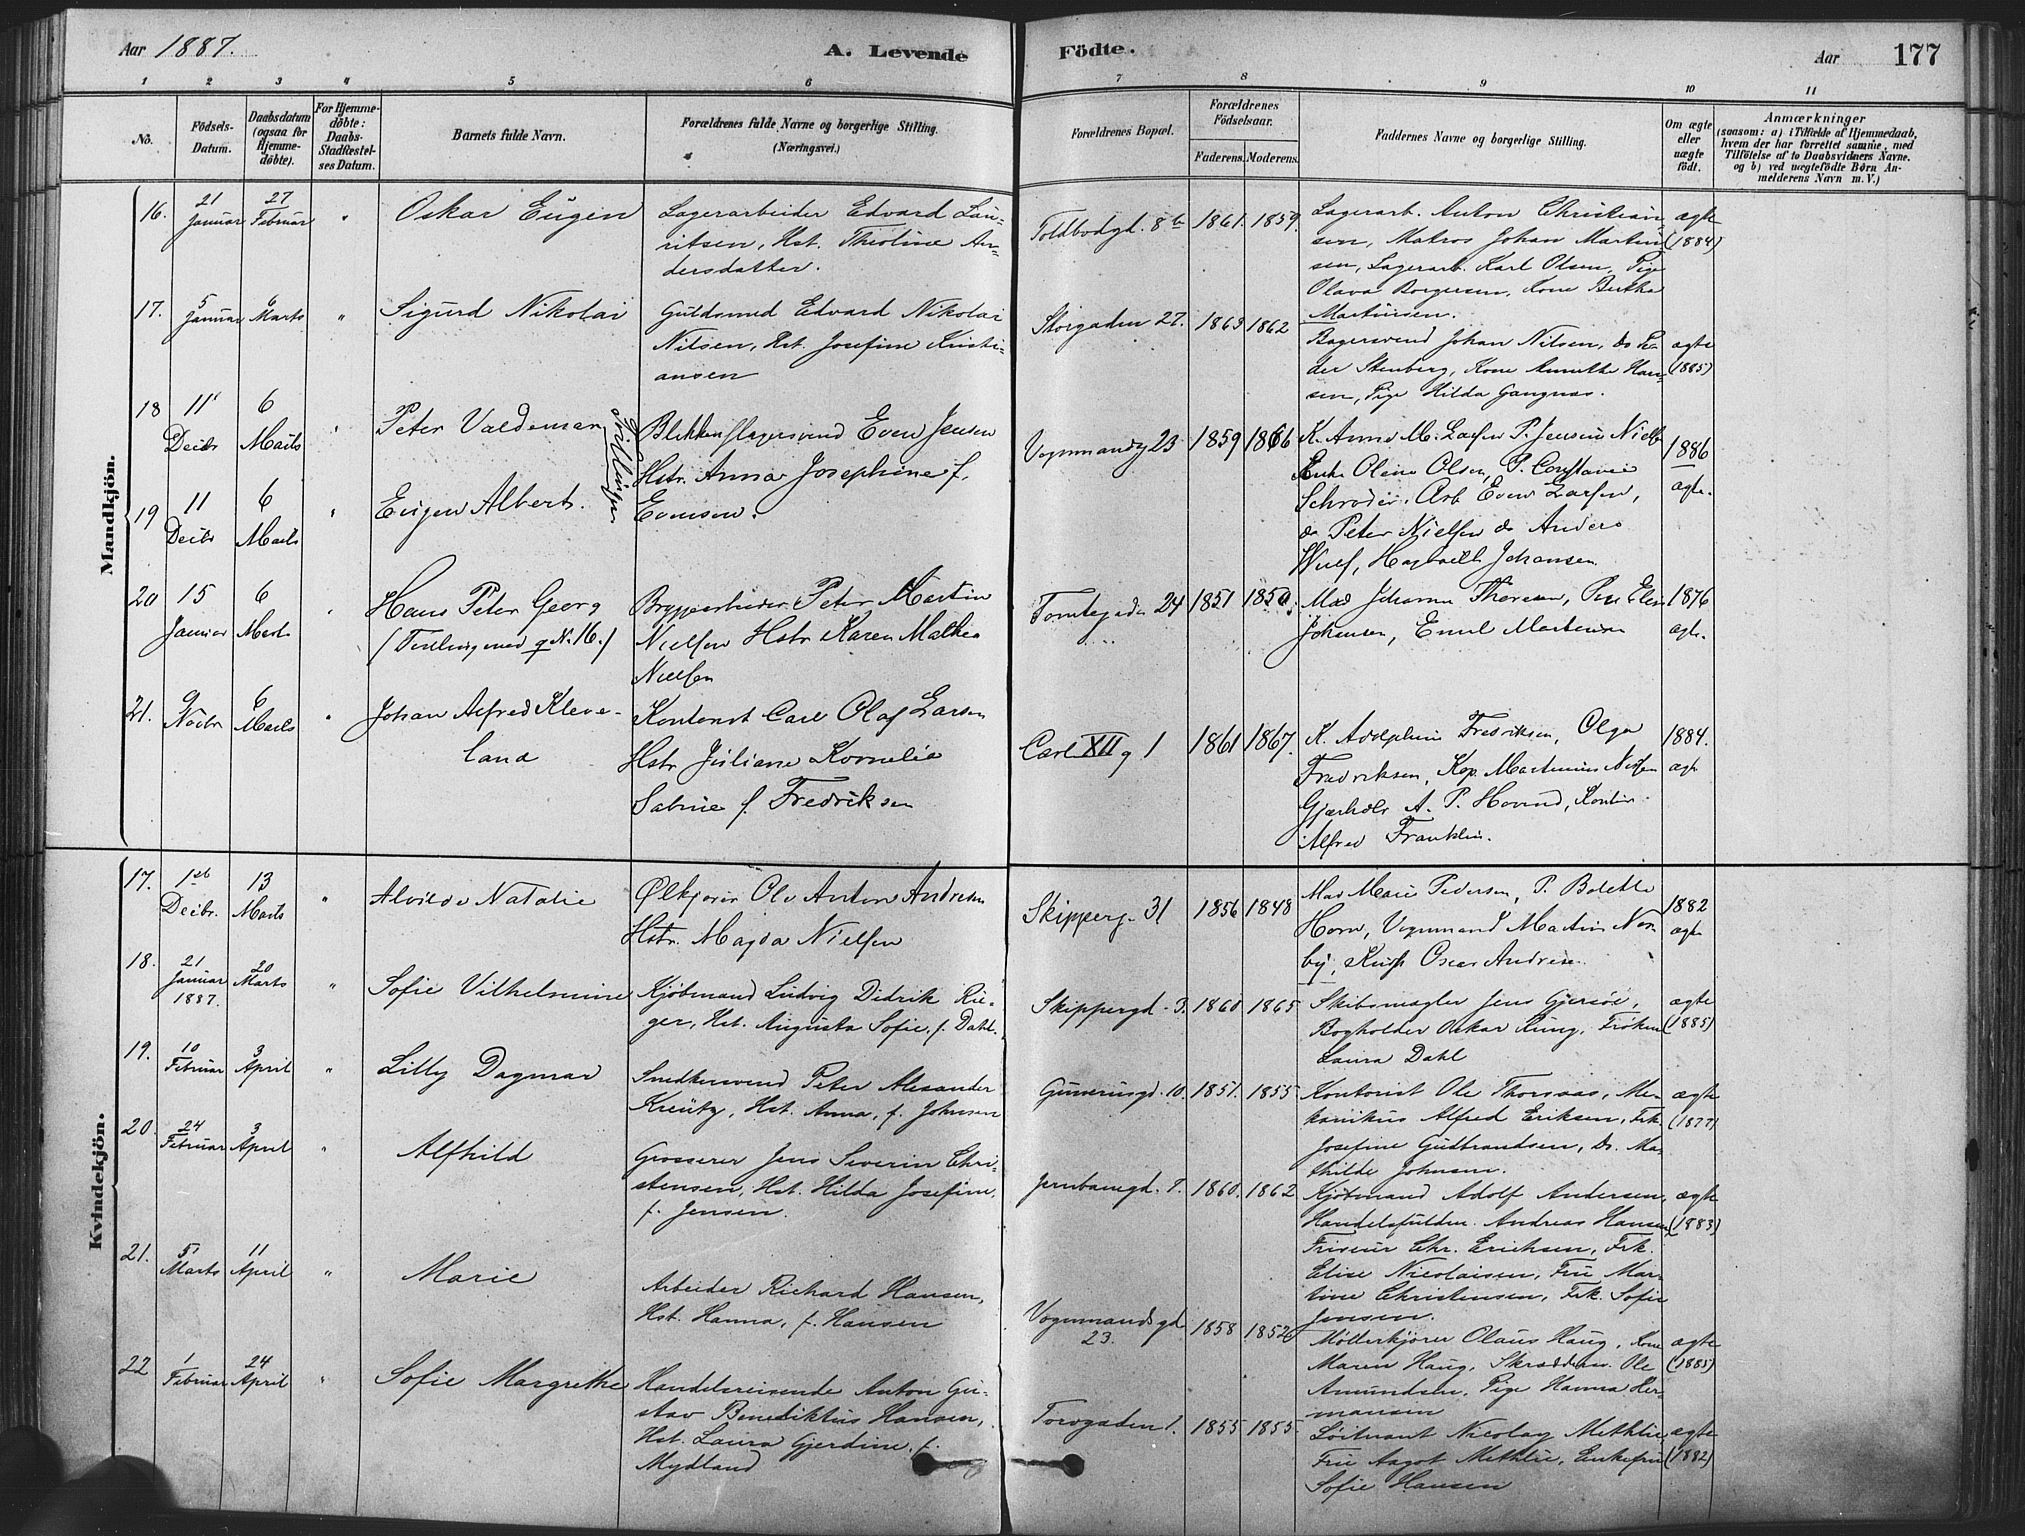 Aar 1887.
A. Levende
Födte.
Aar
177
1 2 3 4 5 6 7 8 9 10 11
No.
Födsels-
Datum.
Daabsdatum
(ogsaa for
Hjemme-
döbte).
For Hjemme-
döbte:
Daabs-
Stadfæstel-
ses Datum.
Barnets fulde Navn.
Forældrenes fulde Navne og borgerlige Stilling.
(Næringsvei.)
Forældrenes Bopæl.
Forældrenes
Födselsaar.
Faderens.
Moderens.
Faddernes Navne og borgerlige Stilling.
Om ægte
eller
uægte
födt.
Anmærkninger
(saasom: a) i Tilfælde af Hjemmedaab,
hvem der har forrettet samme, med
Tilföielse af to Daabsvidners Navne.
og b) ved uægtefödte Børn An-
melderens Navn m. V.)
Mandkjön.
16.
21
Januar
27
Februar
"
Oskar Eugen
Lagerarbeider Edvard Lau-
ritsen, Hst. Theoline An-
dersdatter.
Toldbodgd. 8b
1861.
1859.
Lagerarb. Anton Christian-
sen, Matros Johan Martin-
sen, Lagerarb. Karl Olsen, Pige
Olava Borgersen, Kone Bertha
Martinsen.
ægte
(1884)
17.
5
Januar
6
Marts
"
Sigurd Nikolai
Guldsmed Edvard Nikolai
Nilsen, Hst. Josefine Kristi-
ansen
Storgaden 27.
1863
1862
Bagersvend Johan Nilsen, Do Pe-
der Stenberg, Kone Annethe Han-
sen, Pige Hilda Gangnæs.
ægte
(1885)
18
11
Decbr
6
Marts
"
Peter Valdemar
Tvillinger
Blikkenslagersvend Even Jensen
Hstr. Anna Josephine f.
Evensen.
Vognmandg 23
1859
1866
K. Anne M. Larsen P. Jensine Niels
Enke Olene Olsen, P. Constance
Schrøder. Arb Even Larsen,
do Peter Nielsen do Anders
Wulf, Johansen
1886
ægte.
19
11
Decbr
6
Marts
"
Eugen Albert.
20
15
Januar
6
Marts
"
Hans Peter Georg
(Tvilling med q N. 16.)
Bryggearbeider Peter Martin
Nielsen Hstr Karen Mathea
Nielsen
Tomtegaden 24
1851
1850
Mad Johanne Thoresen, Elen
Johansen, Emil Martinsen
1876
ægte.
21.
9
Novbr
6
Marts
"
Johan Alfred Kleve-
land
Kontorist Carl Olaf Larsen
Hstr Juliane Kornelie
Sabine f. Fredriksen
Carl XII g 1
1861
1867.
K. Adolphine Fredriksen, Olga
Fredriksen, Kap. Martinius Nielsen
A. P. Hovind, Kontor.
Alfred Franklin.
1884.
ægte
Kvindekjön.
17.
1st
Decbr.
13
Marts
"
Alvilde Natalie
Ølkjører Ole Anton Andresen
Hstr. Magda Nielsen
Skipperg. 31
1856
1848
Mad Marie Pedersen, P. Bolette
Horn, Vognmand Martin Nor-
by, Kusk Oscar Andresen
1882
ægte
18.
21
Januar
1887.
20
Marts
"
Sofie Vilhelmine
Kjøbmand Ludvig Didrik Rie-
ger, Hst. Augusta Sofie, f. Dahl.
Skippergd. 3.
1860
1865
Skibsmægler Jens Gjersøe,
Bogholder Oskar Rung, Frøken
Laura Dahl
ægte
(1885)
19.
10
Februar
3
April
"
Lilly Dagmar
Snedkersvend Peter Alexander
Kreutz, Hst. Anna, f. Johnsen
Gunerusgd. 10.
1851.
1855
Kontorist Ole Thorsaas, Me-
kanikus Alfred Eriksen, Frk.
Josefine Gudbrandsen, Do. Ma-
thilde Johnsen.
ægte
(1877)
20.
24
Februar
3
April
"
Alfhild
Grosserer Jens Severin Chri-
stensen, Hst. Hilda Josefine,
f. Jensen.
Jernbanegd. 7.
1860.
1862
Kjøbmand Adolf Andersen,
Handelsfuldm. Andreas Hansen,
Friseur Chr. Erichsen, Frk.
Elise Nicolaisen, Fru Mar-
tine Christensen, Frk. Sofie
Jensen.
ægte
(1883)
21.
5
Marts
11
April
"
Marie
Arbeider Richard Hansen,
Hst. Hanna, f. Hansen
Vognmandsgd
23.
1858
1852
Møllerkjører Olaus Haug, Kone
Maren Haug, Skrædersv. Ole
Amundsen, Pige Hanna Her-
mansen
ægte
(1885)
22
1
Februar
24
April
"
Sofie Margrethe
Handelsreisende Anton Gu-
stav Benediktus Hansen,
Hst. Laura Gjerdine, f.
Mydland
Torvgaden 1.
1855
1855.
Løitnant Nicolay Methlie,
Fru Aagot Methlie, Enkefru
Sofie Hansen
ægte
(1882)